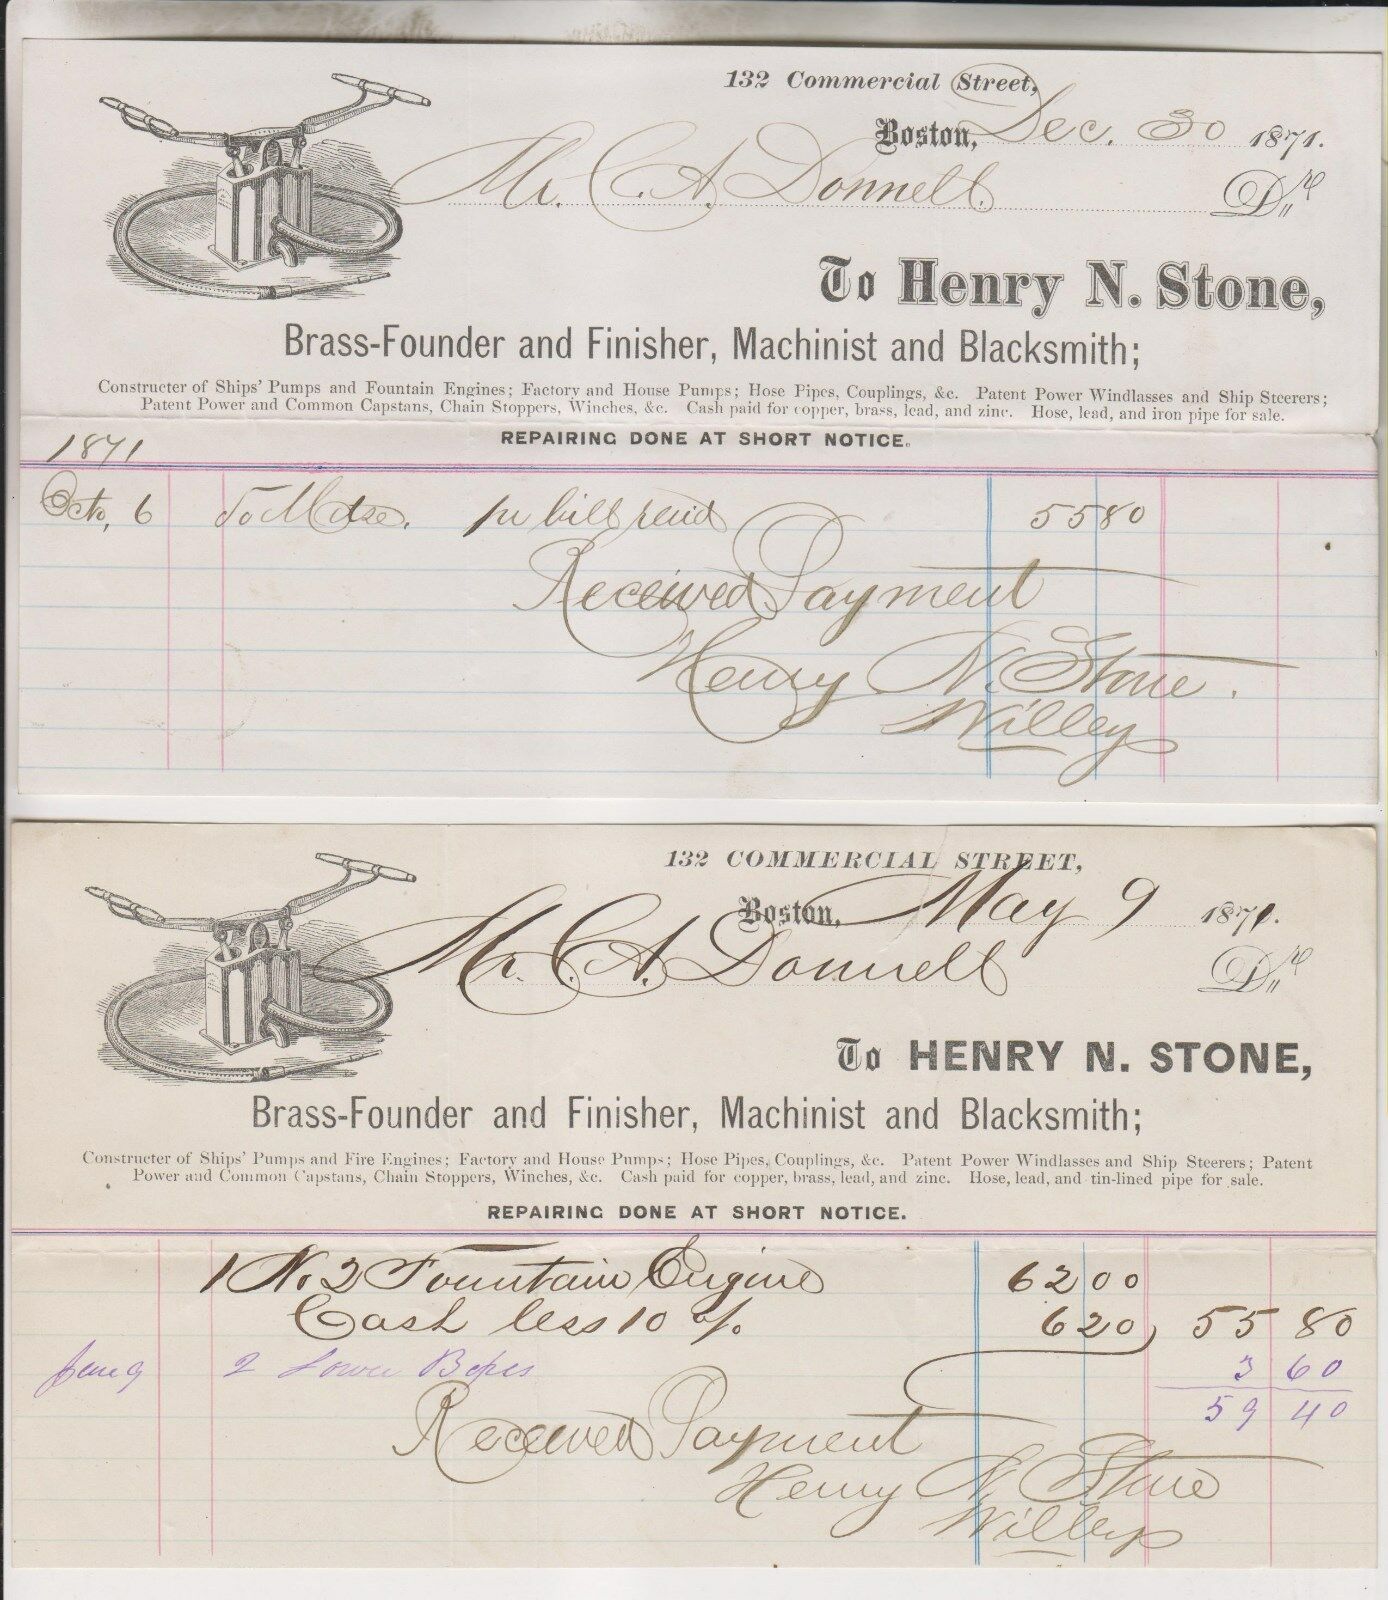 132 Commercial Street,
Boston, Dec. 30 1871.
Mr. C. A. Donnell. Dr
To Henry N. Stone,
Brass-Founder and Finisher, Machinist and Blacksmith;
Constructer of Ships' Pumps and Fountain Engines; Factory and House Pumps; Hose Pipes, Couplings, &c. Patent Power Windlasses and Ship Steerers;
Patent Power and Common Capstans, Chain Stoppers, Winches, &c. Cash paid for copper, brass, lead, and zinc. Hose, lead, and iron pipe for sale.
REPAIRING DONE AT SHORT NOTICE.
1871
Oct, 6 To Mdse. pr bill rend 55 80
Received Payment
Henry N. Stone.
Willey
132 COMMERCIAL STREET,
Boston, May 9 1871.
Mr. C. A. Donnell Dr
To HENRY N. STONE,
Brass-Founder and Finisher, Machinist and Blacksmith;
Constructer of Ships' Pumps and Fire Engines; Factory and House Pumps; Hose Pipes, Couplings, &c. Patent Power Windlasses and Ship Steerers; Patent
Power and Common Capstans, Chain Stoppers, Winches, &c. Cash paid for copper, brass, lead, and zinc. Hose, lead, and tin-lined pipe for sale.
REPAIRING DONE AT SHORT NOTICE.
1 No 2 Fountain Engine 62 00
Cash less 10 % 6 20 55 80
2 Lower 3 60
59 40
Received Payment
Henry N. Stone
Willey